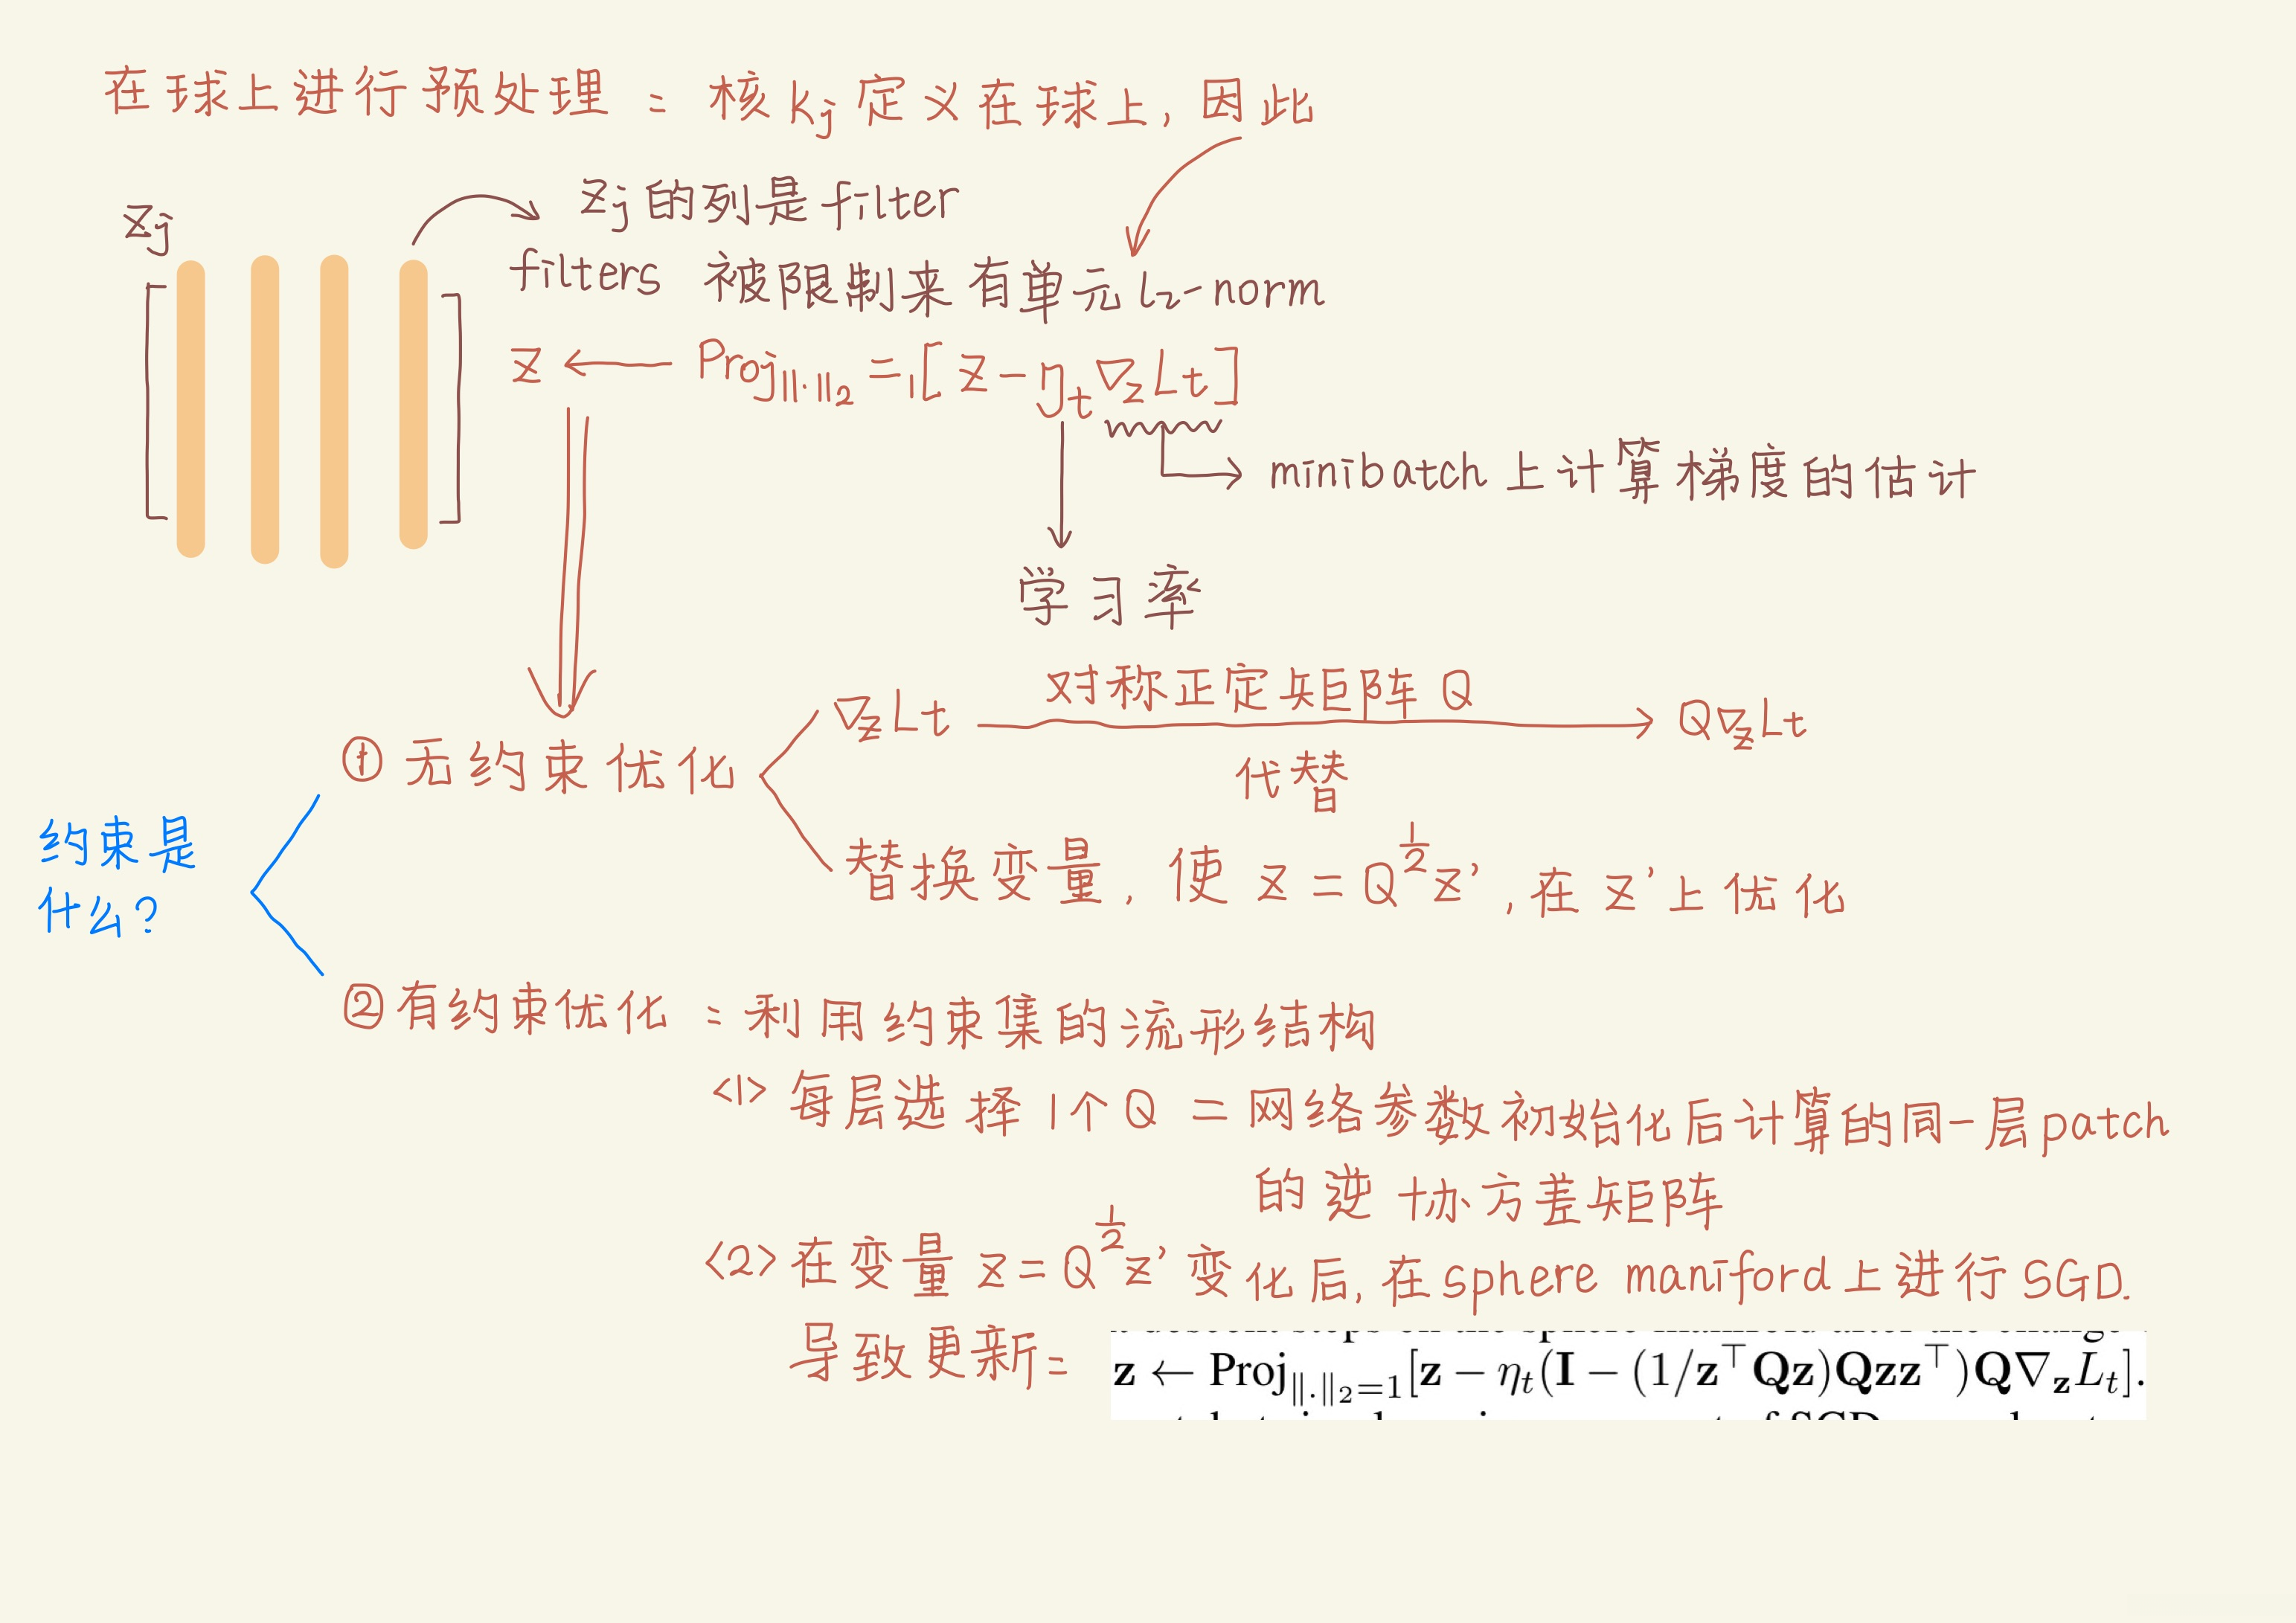 在球上进行预处理 = 核 kj 定义在球上, 因此
Zj
Zj 的列是 filter
filters 被限制来有单元 l₂-norm
Z ← Proj||·||₂=1[Z-ηt∇zLt]
minibatch 上计算梯度的估计
学习率
对称正定矩阵 Q
∇zLt → Q∇zLt
代替
① 无约束优化
约束是
什么?
替换变量, 使 z = Q^½z', 在 z' 上优化
② 有约束优化 = 利用约束集的流形结构
<1> 每层选择 1个 Q = 网络参数初始化后计算的同一层 patch
的逆协方差矩阵
<2> 在变量 z = Q^½z' 变化后, 在 sphere maniford 上进行 SGD.
导致更新 = z ← Proj‖.‖₂=1[z − ηt(I − (1/z⊤Qz)Qzz⊤)Q∇zLt].